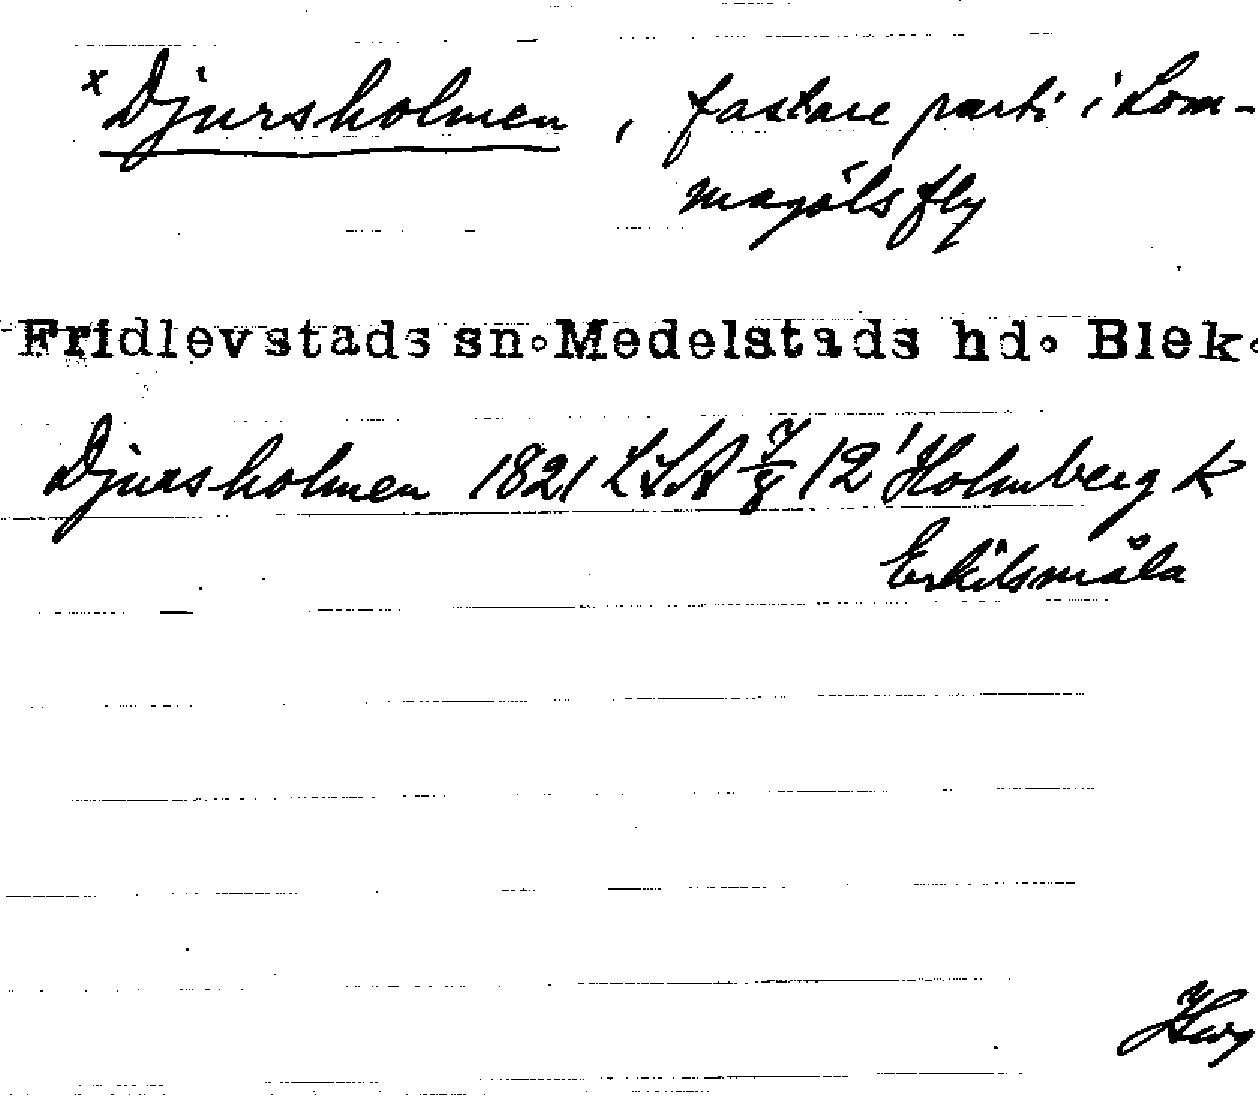 x Djursholmen, fastare parti i Lom-
magölsfly
Fridlevstads sn. Medelstads hd. Blek.
Djursholmen 1821 LSA 12 Holmberg k
Erkilsmåla